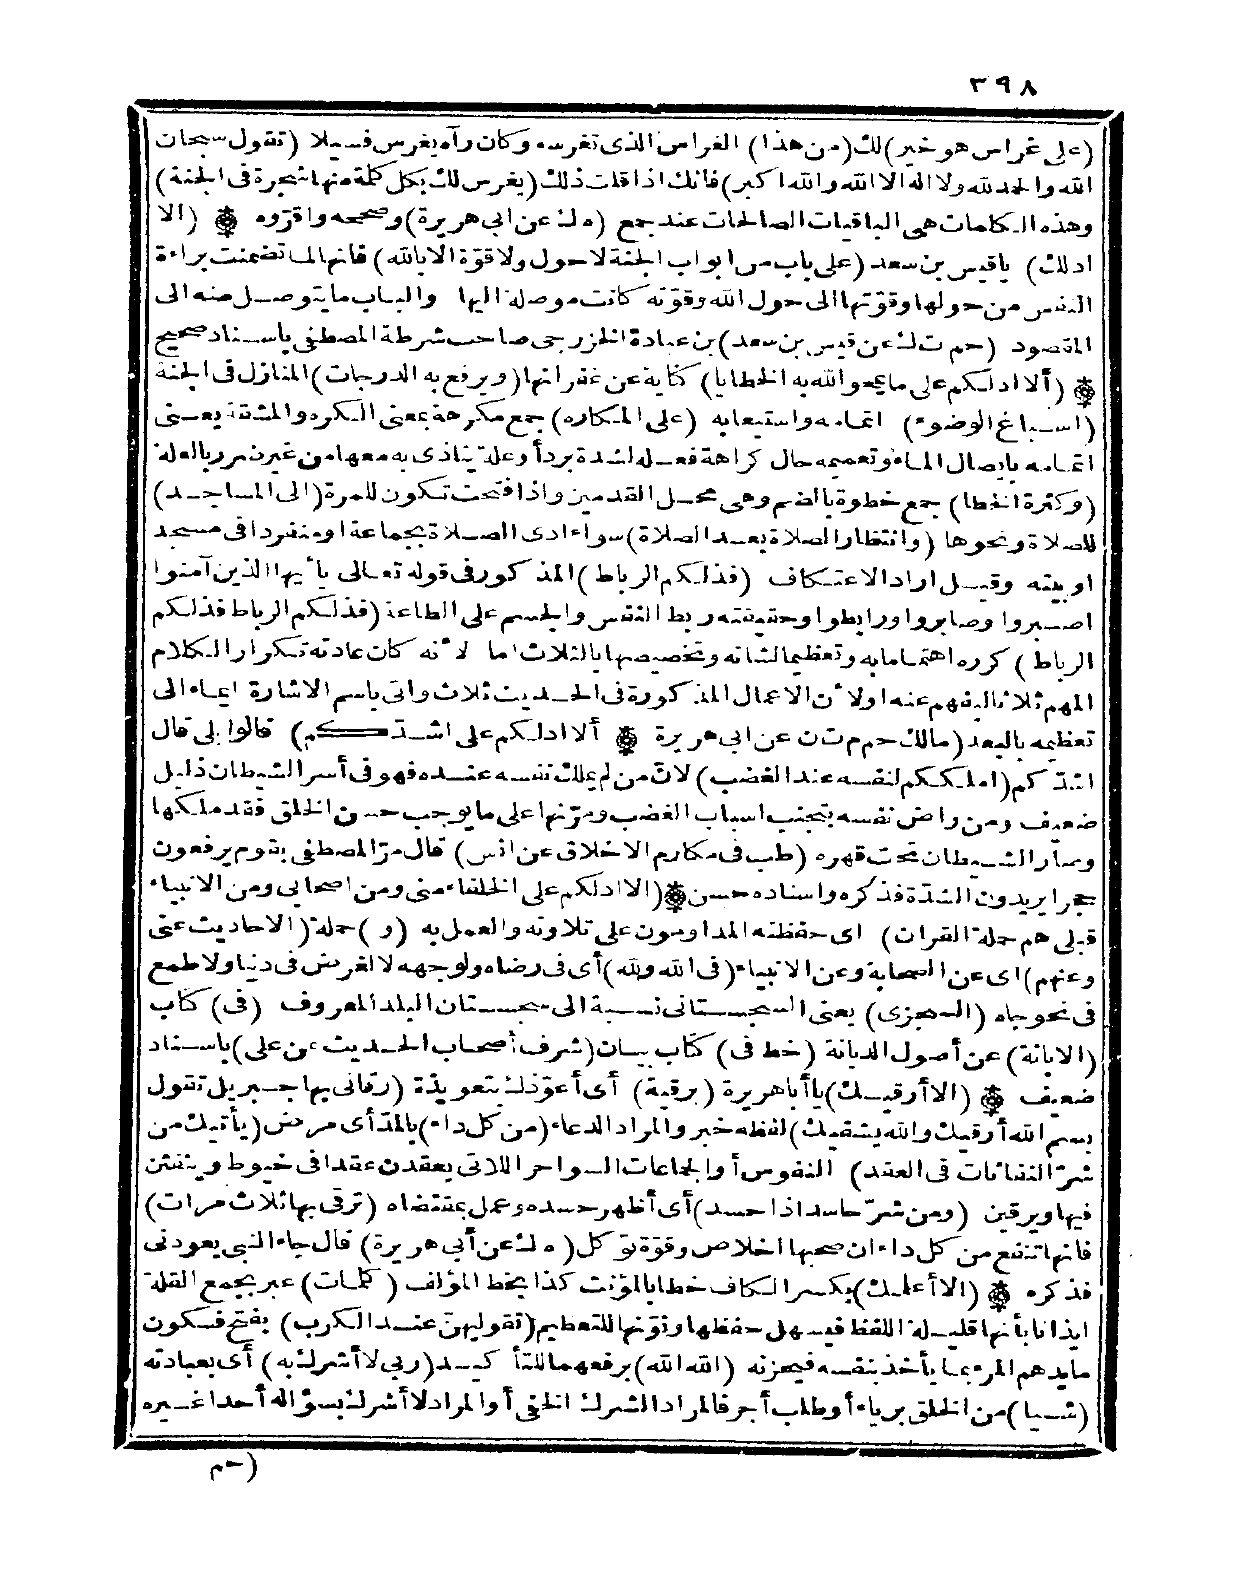 ٣٩٨
(على غراس هو خير) لك (من هذا) الغراس الذى تغرسه وكان رآه يغرس فسيلا (تقول سبحان
الله والحمد لله ولا اله الا الله والله اكبر) فانك اذا قلت ذلك (يغرس لك بكل كلمة منها شجرة فى الجنة)
وهذه الكلمات هى الباقيات الصالحات عند جمع (ه ك عن ابى هريرة) وصححه واقروه ۞ (الا
ادلك) ياقيس بن سعد (على باب من ابواب الجنة لا حول ولا قوّة الا بالله) فانها لما تضمنت براءة
النفس من حولها وقوّتها الى حول الله وقوّته كانت موصلة اليها والباب ما يتوصل منه الى
المقصود (حم ت ك عن قيس بن سعد) بن عبادة الخزرجى صاحب شرطة المصطفى باسناد صحيح
۞ (ألا ادلكم على ما يمحو الله به الخطايا) كناية عن غفرانها (ويرفع به الدرجات) المنازل فى الجنة
(اسباغ الوضوء) اتمامه واستيعابه (على المكاره) جمع مكرهة بمعنى الكره والمشقة يعنى
اتمامه بايصال الماء وتعميمه حال كراهة فعله لشدة برد أو علة يتاذى به معها من غير ضرر بالعلة
(وكثرة الخطا) جمع خطوة بالضم وهى محل القدمين واذا فتحت تكون للمرة (الى المساجد)
للصلاة ونحوها (وانتظار الصلاة بعد الصلاة) سواء ادى الصلاة بجماعة او منفردا فى مسجد
او بيته وقيل اراد الاعتكاف (فذلكم الرباط) المذكور فى قوله تعالى يأيها الذين آمنوا
اصبروا وصابروا ورابطوا وحقيقته ربط النفس والجسم على الطاعة (فذلكم الرباط فذلكم
الرباط) كرره اهتماما به وتعظيما لشانه وتخصيصها بالثلاث اما لأنه كان عادته تكرار الكلام
المهم ثلاثا ليفهم عنه اولأن الاعمال المذكورة فى الحديث ثلاث واتى باسم الاشارة ايماء الى
تعظيمه بالبعد (مالك حم م ت ن عن ابى هريرة ۞ ألا ادلكم على اشدكم) قالوا بلى قال
اشدكم (املككم لنفسه عند الغضب) لانّ من لم يملك نفسه عنده فهو فى أسر الشيطان ذليل
ضعيف ومن راض نفسه بتجنب اسباب الغضب ومرّنها على ما يوجب حسن الخلق فقد ملكها
وصار الشيطان تحت قهره (طب فى مكارم الاخلاق عن انس) قال مرّ المصطفى بقوم يرفعون
حجرا يريدون الشدة فذكره واسناده حسن ۞ (الا ادلكم على الخلفاء منى ومن اصحابى ومن الانبياء
قبلى هم حملة القران) اى حفظته المداومون على تلاوته والعمل به (و) حملة (الاحاديث عنى
وعنهم) اى عن الصحابة وعن الانبياء (فى الله ولله) أى فى رضاه ولوجهه لا لغرض فى دنيا ولا طمع
فى نحو جاه (السجزى) يعنى السجستانى نسبة الى سجستان البلد المعروف (فى) كتاب
(الابانة) عن أصول الديانة (خط فى) كتاب بيان (شرف أصحاب الحديث عن على) باسناد
ضعيف ۞ (الا أرقيك) يا أبا هريرة (برقية) أى أعوّذك بتعويذة (رقانى بها جبريل تقول
بسم الله أرقيك والله يشفيك) لفظه خبر والمراد الدعاء (من كل داء) بالمدّ أى مرض (يأتيك من
شرّ النفاثات فى العقد) النفوس أو الجماعات السواحر اللاتى يعقدن عقدا فى خيوط وينفثن
فيها ويرقين (ومن شرّ حاسد اذا حسد) أى أظهر حسده وعمل بمقتضاه (ترقى بها ثلاث مرات)
فانها تنفع من كل داء ان صحبها اخلاص وقوّة توكل (ه ك عن أبى هريرة) قال جاء النبى يعودنى
فذكره ۞ (الا أعلمك) بكسر الكاف خطابا لمؤنث كذا بخط المؤلف (كلمات) عبر بجمع القلة
ايذانا بأنها قليلة اللفظ فيسهل حفظها ونوّنها للتعظيم (تقوليهنّ عند الكرب) بفتح فسكون
ما يدهم المرء مما يأخذ بنفسه فيحزنه (الله الله) برفعهما للتأكيد (ربى لا أشرك به) أى بعبادته
(شيا) من الخلق برياء أو طلب أجر فالمراد الشرك الخفى أو المراد لا أشرك بسؤاله أحدا غيره
(حم